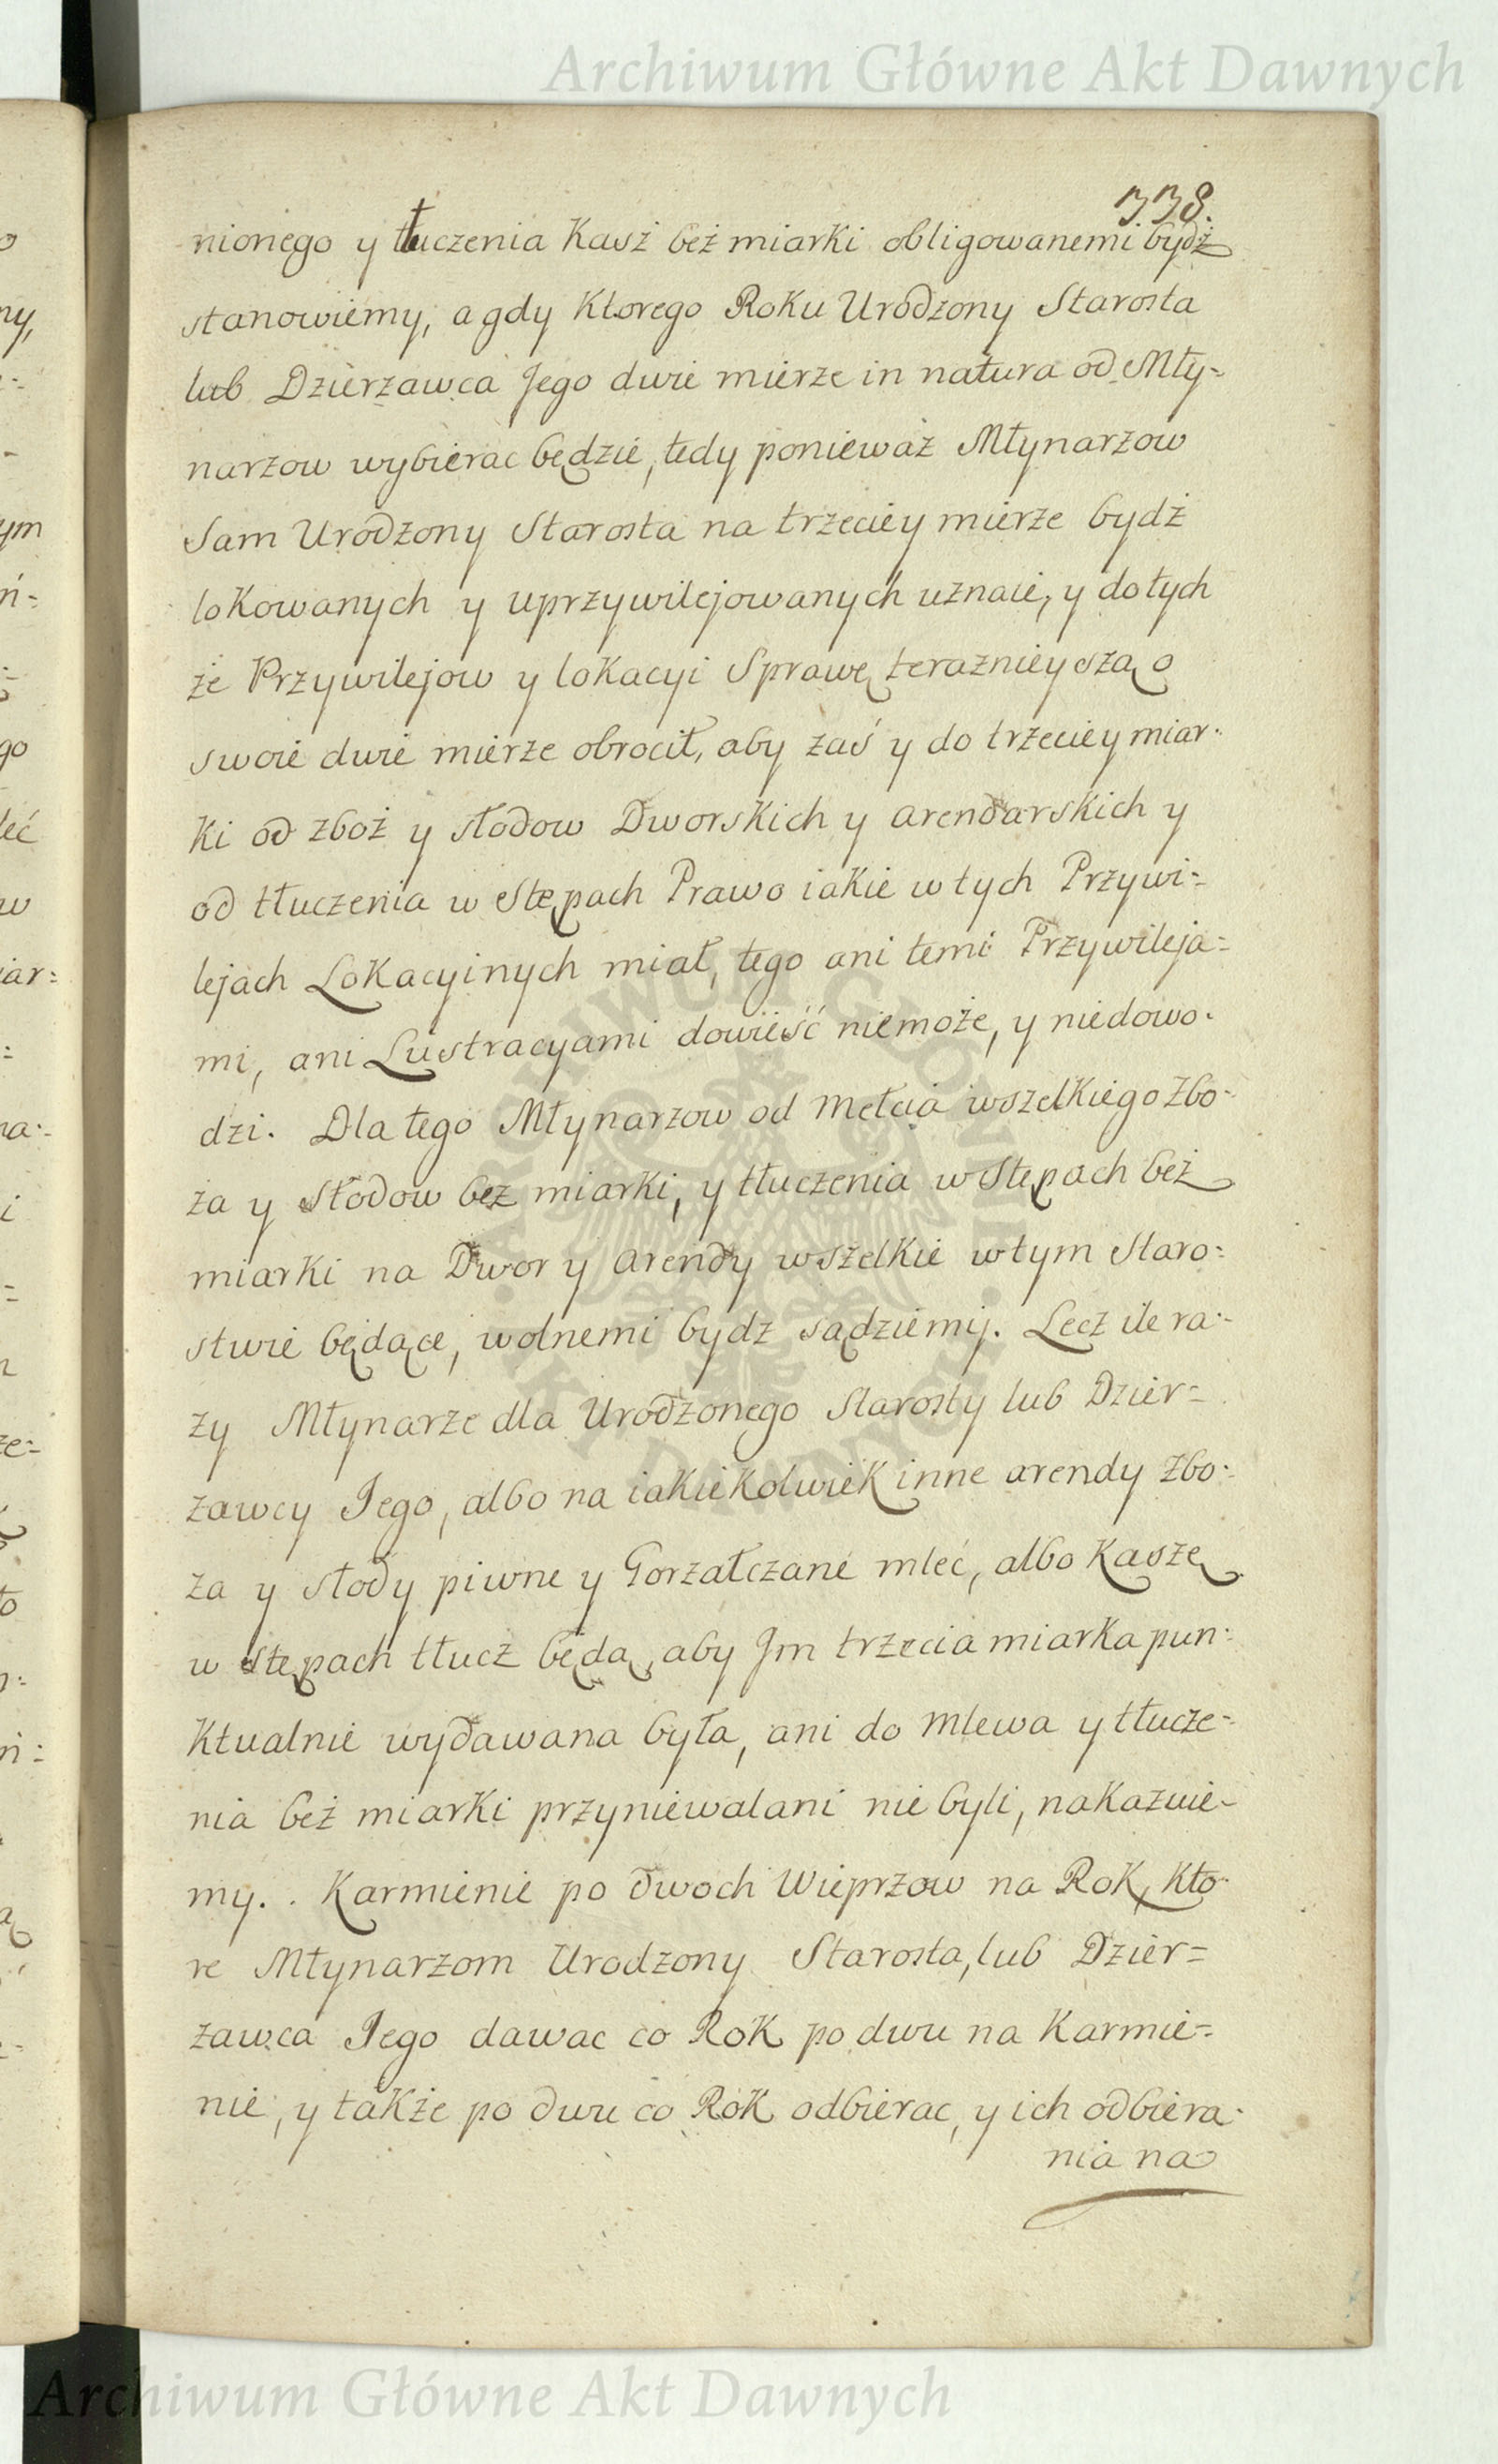 Archiwum Główne Akt Dawnych
338.
nionego y tłuczenia Kasż beż miarki obligowanemi bydż
stanowiemy, a gdy Ktorego Roku Urodzony Starosta
lub Dzierzawca Jego dwie mierze in natura od Mły-
narzow wybierac będzie, tedy ponieważ Młynarzow
Sam Urodzony Starosta na trzeciey mierze bydż
loKowanych y uprzywilejowanych uznaie, y do tych
że Przywilejow y loKacyi Sprawę terazniieyszą o
swoie dwie mierze obrocił, aby zaś y do trzeciey miar-
Ki od zboż y słodow Dworskich y arendarskich y
od tłuczenia w Stępach Prawo iakie w tych Przywi=
lejach LoKacyinych miał, tego ani temi Przywileja=
mi, ani Lustracyami dowieść niemoże, y niedowo-
dzi. Dla tego Młynarzow od Mełcia wszelkiego Zbo-
ża y Słodow bez miarki, y tłuczenia w Stępach beż
miarki na Dwor y arendy wszelkie w tym Staro=
stwie będące, wolnemi bydz sądziemy. Lecz ile ra-
zy Młynarze dla Urodzonego Starosty lub Dzier=
zawcy Jego, albo na iakieKolwiek inne arendy Zbo-
za y słody piwne y Gorzałczane mleć, albo Kaszę
w Stępach tłucz będą, aby Jm trzecia miarka pun-
Ktualnie wydawana była, ani do mlewa y tłucze-
nia beż miarki przyniewalani nie byli, naKazuie-
my. Karmienie po dwoch Wieprzow na RoK, Kto-
re Młynarzom Urodzony Starosta, lub Dzier=
zawca Jego dawac co RoK po dwu na Karmie=
nie, y także po dwu co RoK odbierac, y ich odbiera-
nia na
ARCHIWUM GŁÓWNE AKT DAWNYCH
Archiwum Główne Akt Dawnych